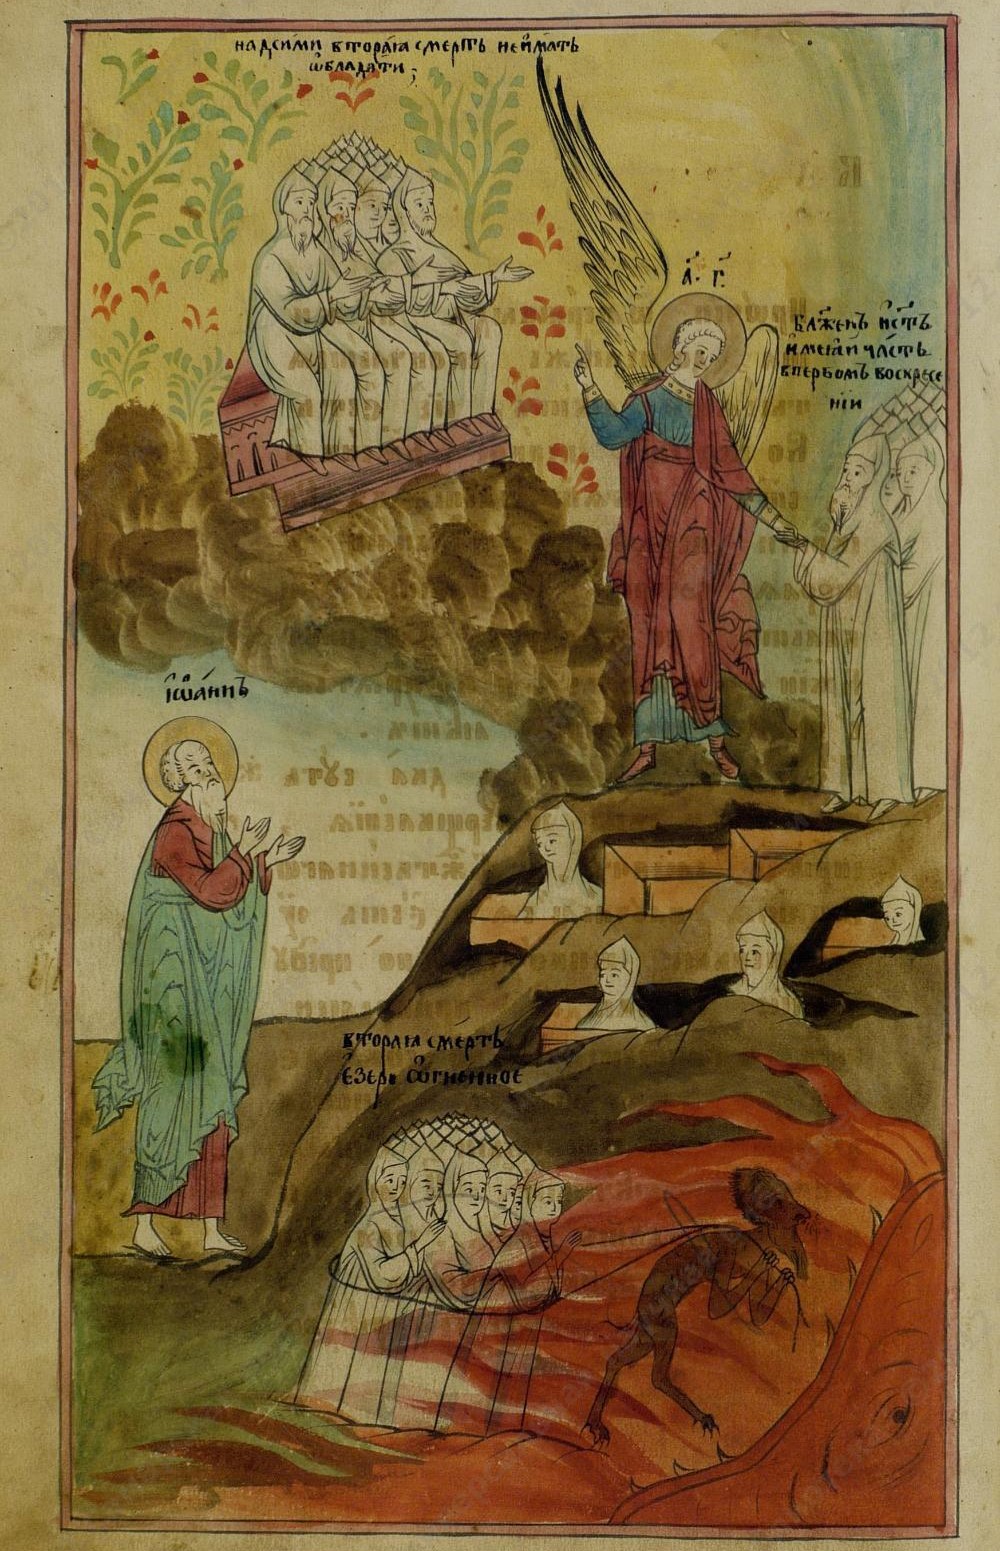 надсими втораѧ смерть неимать
ѡбладати;
А҃. Г҃.
блаженъ истъ
имеѧи часть
впервомъ воскресе
нїи
Їѡаннъ
втораѧ смерть
езеро ѡгненное